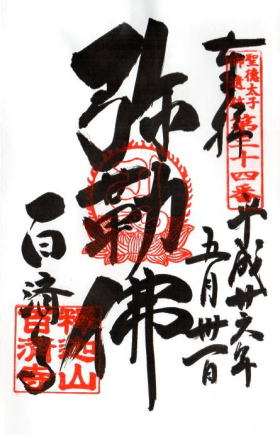 奉拝
聖徳太子
御遺跡
第三十四番
平成廿六年
五月卅一日
弥勒佛
百済寺
釋迦山
百済寺